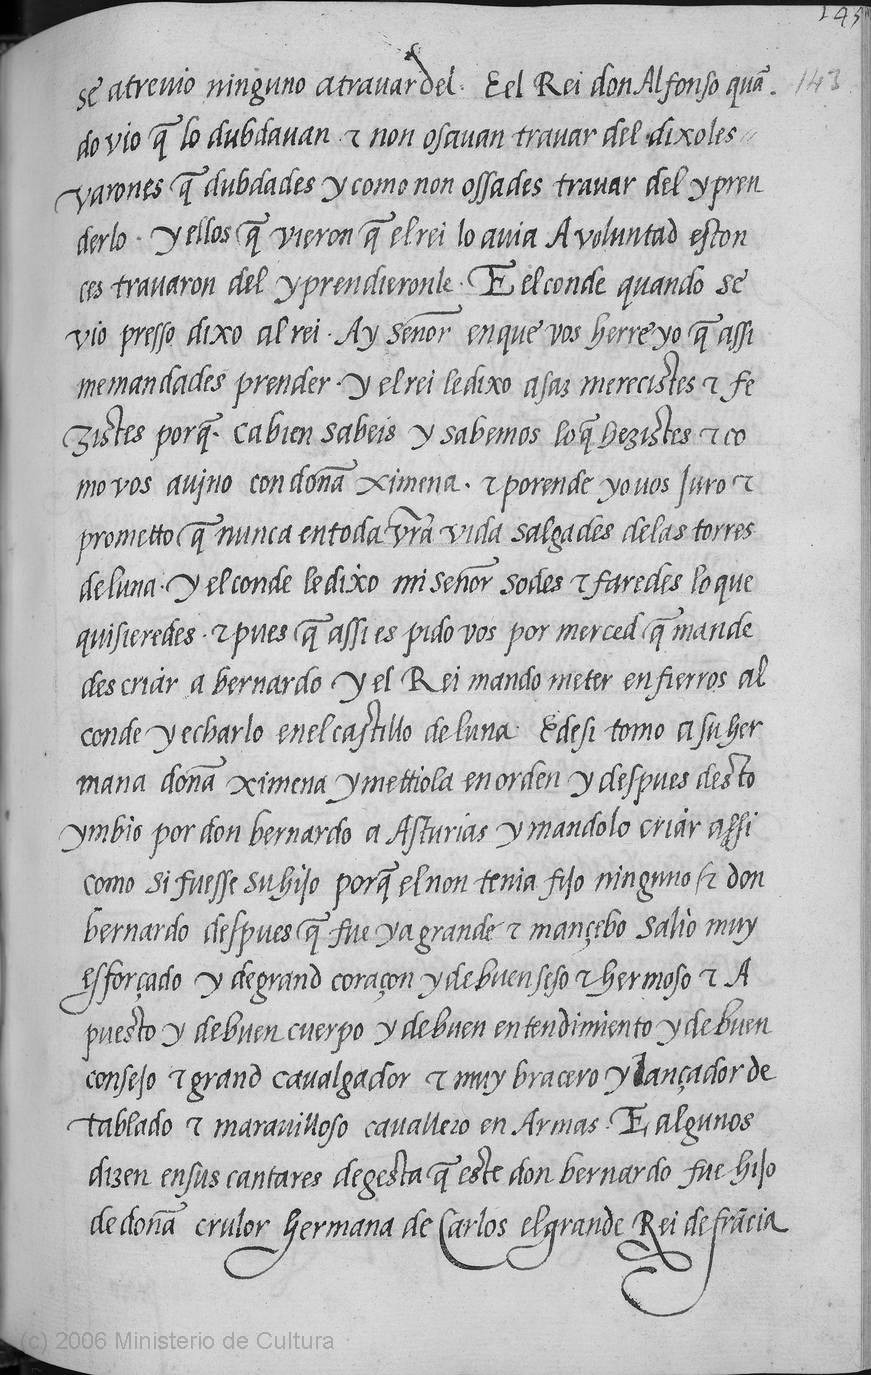 145
143
se atreuio ninguno atrauar del. E el Rei don Alfonso quã.
do vio q̃ lo dubdauan τ non osauan trauar del dixoles
varones q̃ dubdades y como non ossades trauar del y pren
derlo. y ellos q̃ vieron q̃ el rei lo auia A voluntad eston
ces trauaron del y prendieronle. E el conde quando se
vio presso dixo al rei. Ay señor en que vos herre yo q̃ assi
me mandades prender. y el rei le dixo asaz merecistes τ fe
zistes porq̃. Ca bien sabeis y sabemos lo q̃ hezistes τ co
mo vos auino con doña ximena. τ por ende yo uos Juro τ
prometto q̃ nunca en toda vr̃a vida salgades delas torres
de luna. y el conde le dixo mi señor sodes τ faredes lo que
quisieredes. τ pues q̃ assi es pido vos por merced q̃ mande
des criar a bernardo y el Rei mando meter en fierros al
conde y echarlo enel castillo de luna. E desi tomo a su her
mana doña ximena y mettiola en orden y despues desto
ymbio por don bernardo a Asturias y mandolo criar assi
como si fuesse su hijo porq̃ el non tenia fijo ninguno τ don
bernardo despues q̃ fue ya grande τ mançebo salio muy
esforçado y de grand coraçon y de buen seso τ hermoso τ A
puesto y de buen cuerpo y de buen entendimiento y de buen
consejo τ grand caualgador τ muy bracero y lançador de
tablado τ marauilloso cauallero en Armas. E algunos
dizen en sus cantares de gesta q̃ este don bernardo fue hijo
de doña crulor hermana de Carlos el grande Rei de frãcia
(c) 2006 Ministerio de Cultura